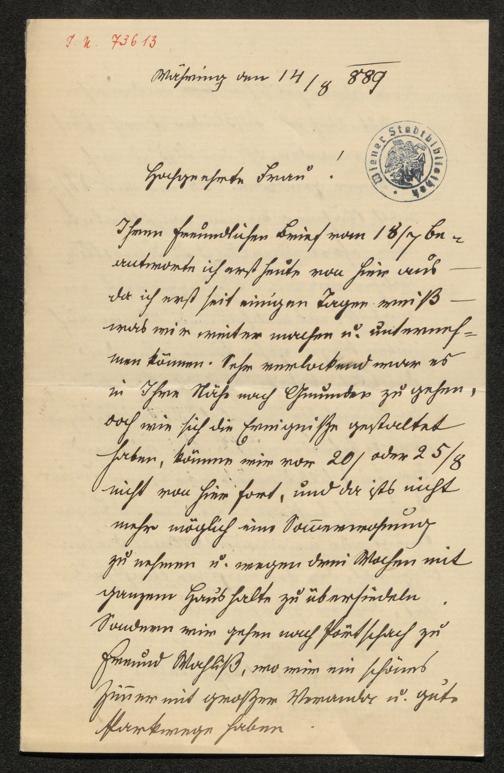 I. N. 73613
Währing den 14/8 889
Wiener Stadtbibliothek
Hochgeehrte Frau!
Ihren freundlichen Brief vom 18/7 be-
antworte ich erst heute von hier aus —
da ich erst seit einigen Tagen weiß —
was wir weiter machen u. unterneh-
men können. Sehr verlockend war es
in Ihre Nähe nach Gmunden zu gehen,
doch wie sich die Ereigniße gestaltet
haben, können wir vor 20/ oder 25/8
nicht von hier fort, und da ists nicht
mehr möglich eine Som̅erwohnung
zu nehmen u. wegen drei Wochen mit
ganzem Haushalte zu übersiedeln.
Sondern wir gehen nach Pörtschach zu
Freund Wahliß, wo wir ein schönes
Zim̅er mit großer Veranda u. gute
Parkwege haben.